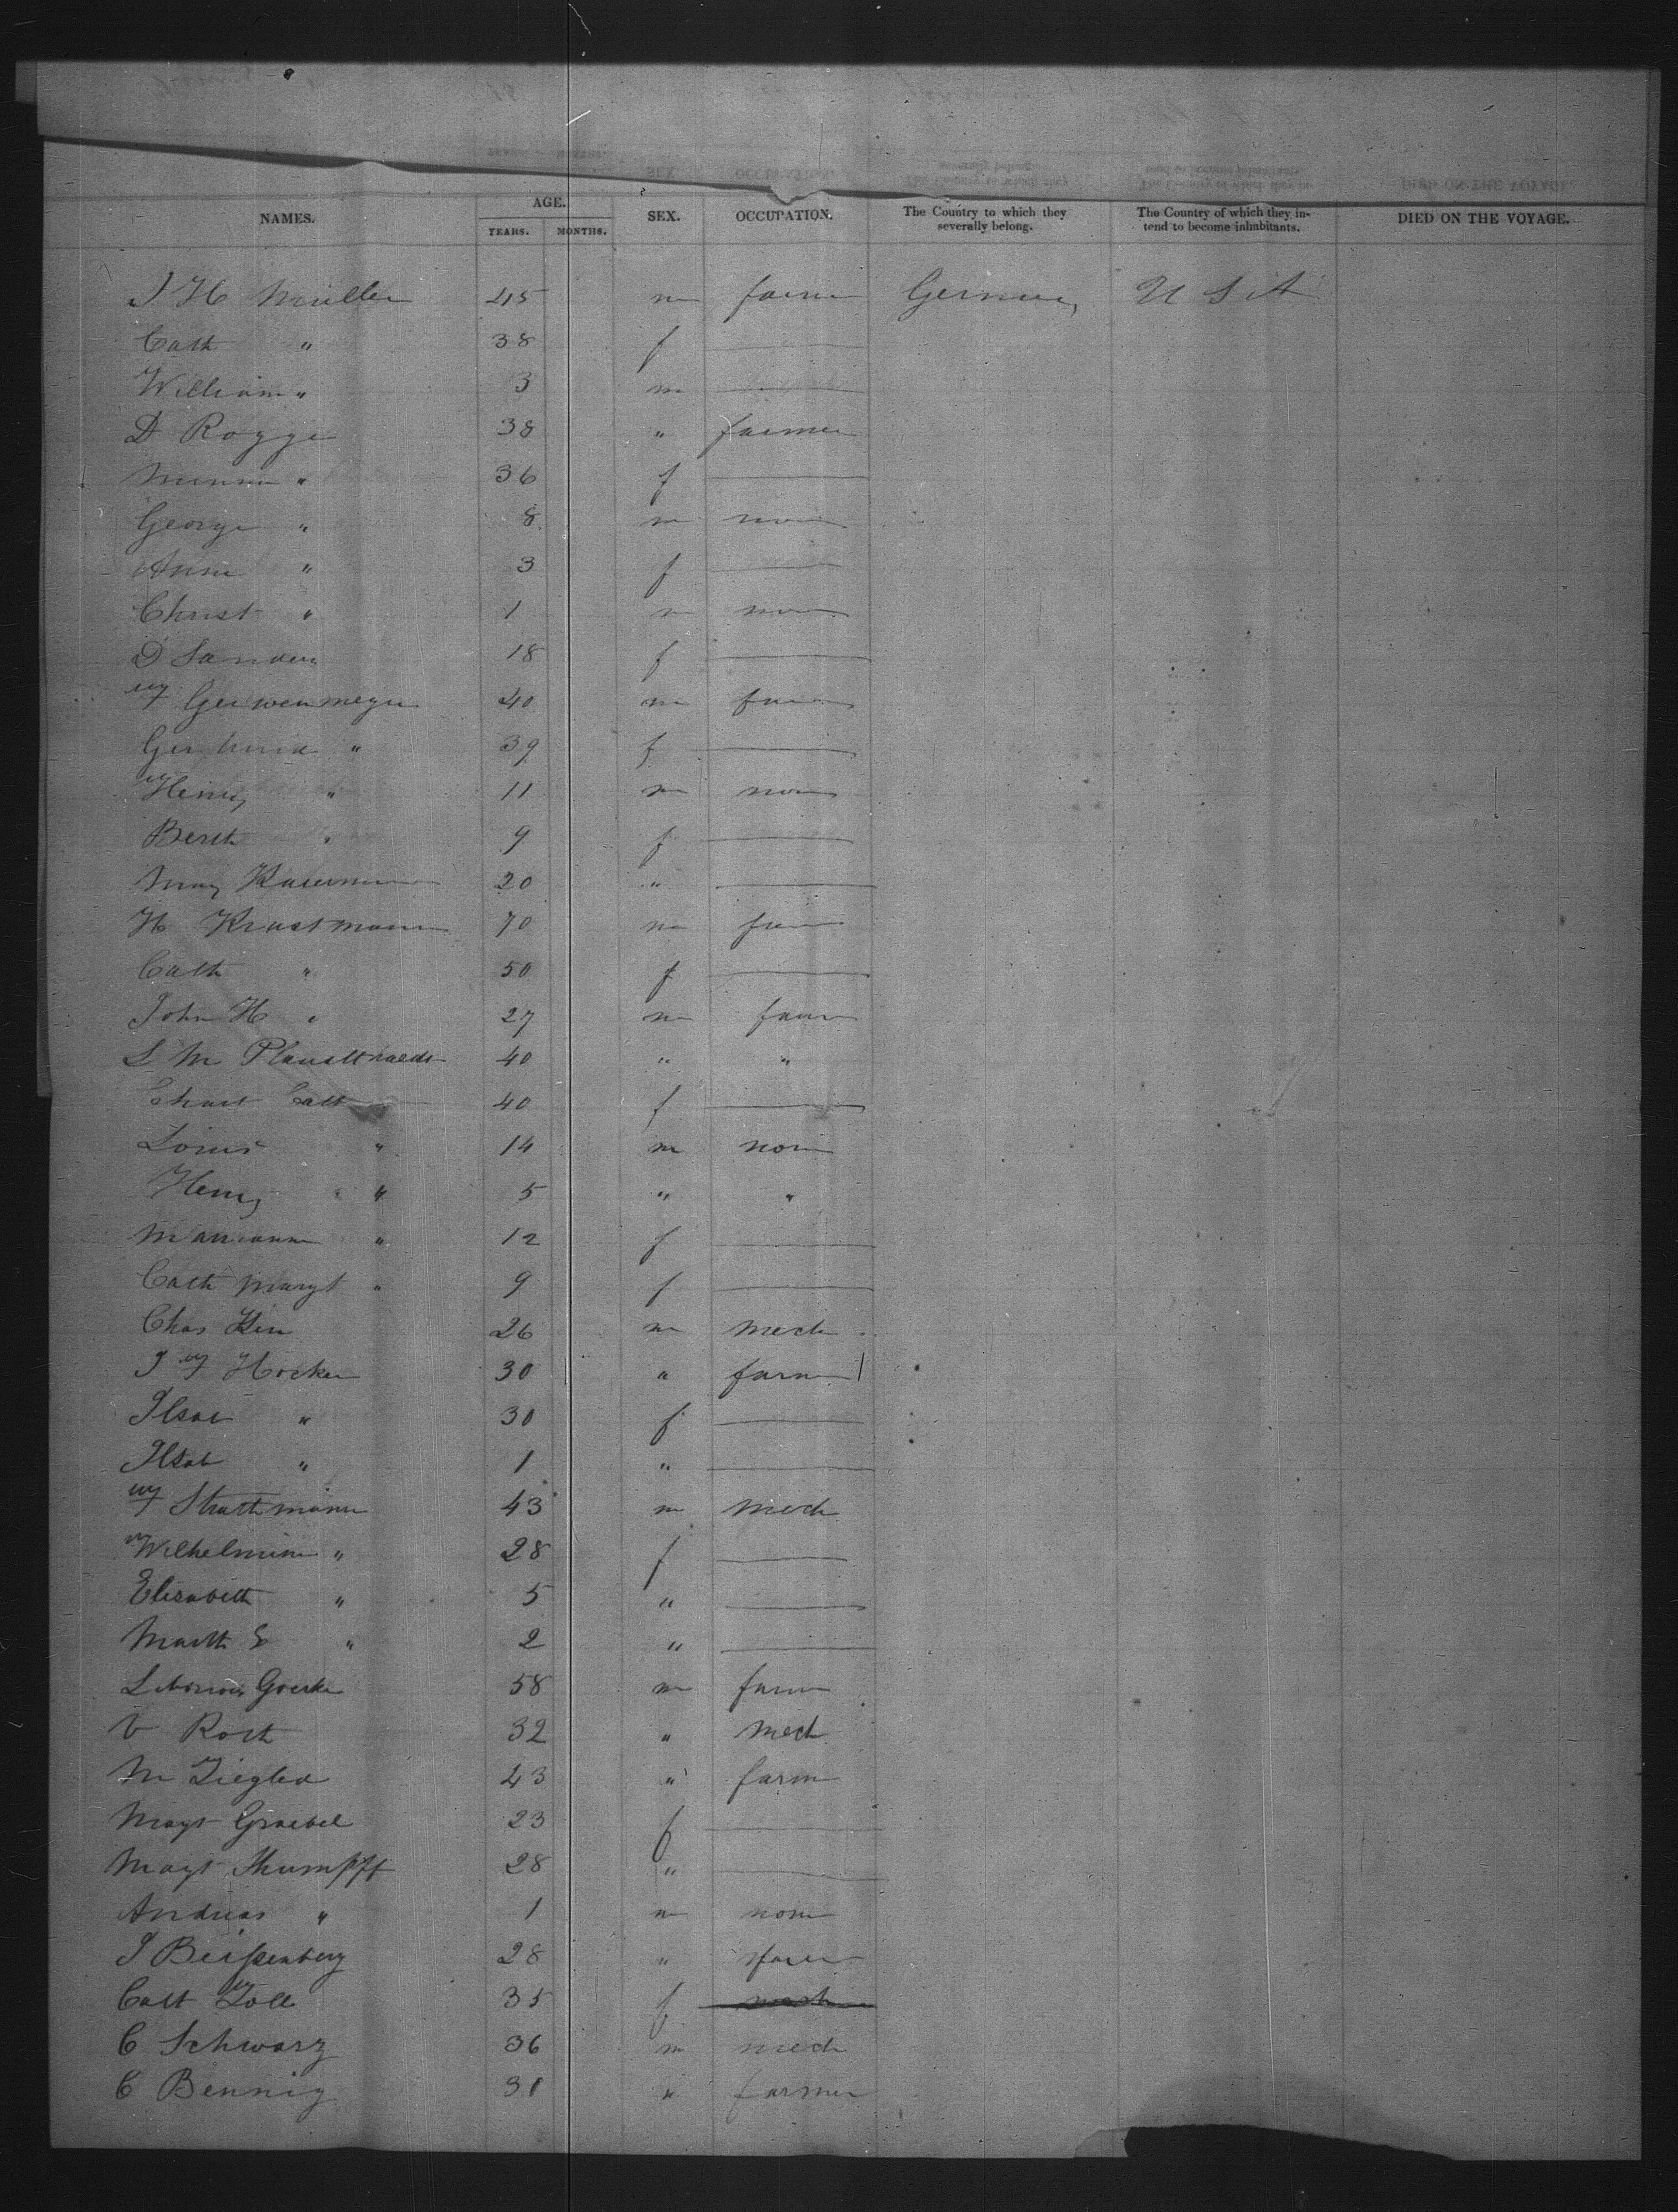 NAMES. AGE. SEX. OCCUPATION. The Country to which they severally belong. The Country of which they intend to become inhabitants. DIED ON THE VOYAGE.
YEARS. MONTHS.
J H Muller 45 m farm Germany U S A
Cath " 38 f
William " 3 m
D Rogge 38 " farmer
36 f
George " 8 m none
Anna " 3 f
Christ " 1 m none
D Sanders 18 f
40 m farm
" 39 f
Henry " 11 m none
Berth " 9 f
Mary 20 "
H Krustmann 70 m farm
Cath " 50 f
John H " 27 m farm
L M 40 " "
40 f
Louis " 14 m none
Henry " 5 " "
Mariann " 12 f
Cath Margt " 9 f
Chas 26 m mech
J W Hocker 30 " farm
Ilsab " 30 f
Ilsab " 1 "
W Strathmann 43 m mech
Wilhelmine " 28 f
Elisabeth " 5 "
Marth E " 2 "
58 m farm
V Roth 32 " mech
M Ziegler 43 " farm
Magt Graebel 23 f
Magt 28 "
Andreas " 1 m none
J Beißenberg 28 " farm
Cath Zoll 35 f
C Schwarz 36 m mech
C Bennig 31 " farmer